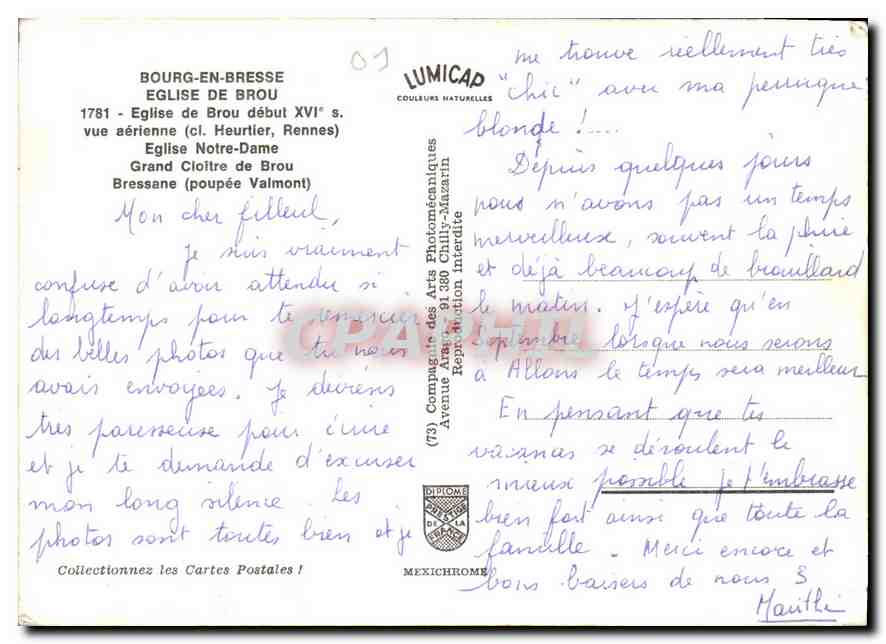 01
BOURG-EN-BRESSE
EGLISE DE BROU
1781 - Eglise de Brou début XVIe s.
vue aérienne (cl. Heurtier, Rennes)
Eglise Notre-Dame
Grand Cloître de Brou
Bressane (poupée Valmont)
Mon cher filleul,
Je suis vraiment
confuse d'avoir attendu si
longtemps pour te remercier
des belles photos que tu nous
avais envoyées. Je deviens
très paresseuse pour écrire
et je te demande d'excuser
mon long silence. Les
photos sont toutes bien et je
Collectionnez les Cartes Postales !
LUMICAP
COULEURS NATURELLES
(73) Compagnie des Arts Photomécaniques
Avenue Arago, 91 380 Chilly-Mazarin
Reproduction interdite
CPAPHIL
DIPLOME
PRESTIGE
DE LA
FRANCE
MEXICHROME
me trouve réellement très
"chic" avec ma perruque
blonde !....
Depuis quelques jours
nous n'avons pas un temps
merveilleux, souvent la pluie
et déjà beaucoup de brouillard
le matin. J'espère qu'en
Septembre lorsque nous serons
à Allons le temps sera meilleur
En pensant que tes
vacances se déroulent le
mieux possible je t'embrasse
bien fort ainsi que toute la
famille. Merci encore et
bons baisers de nous 3